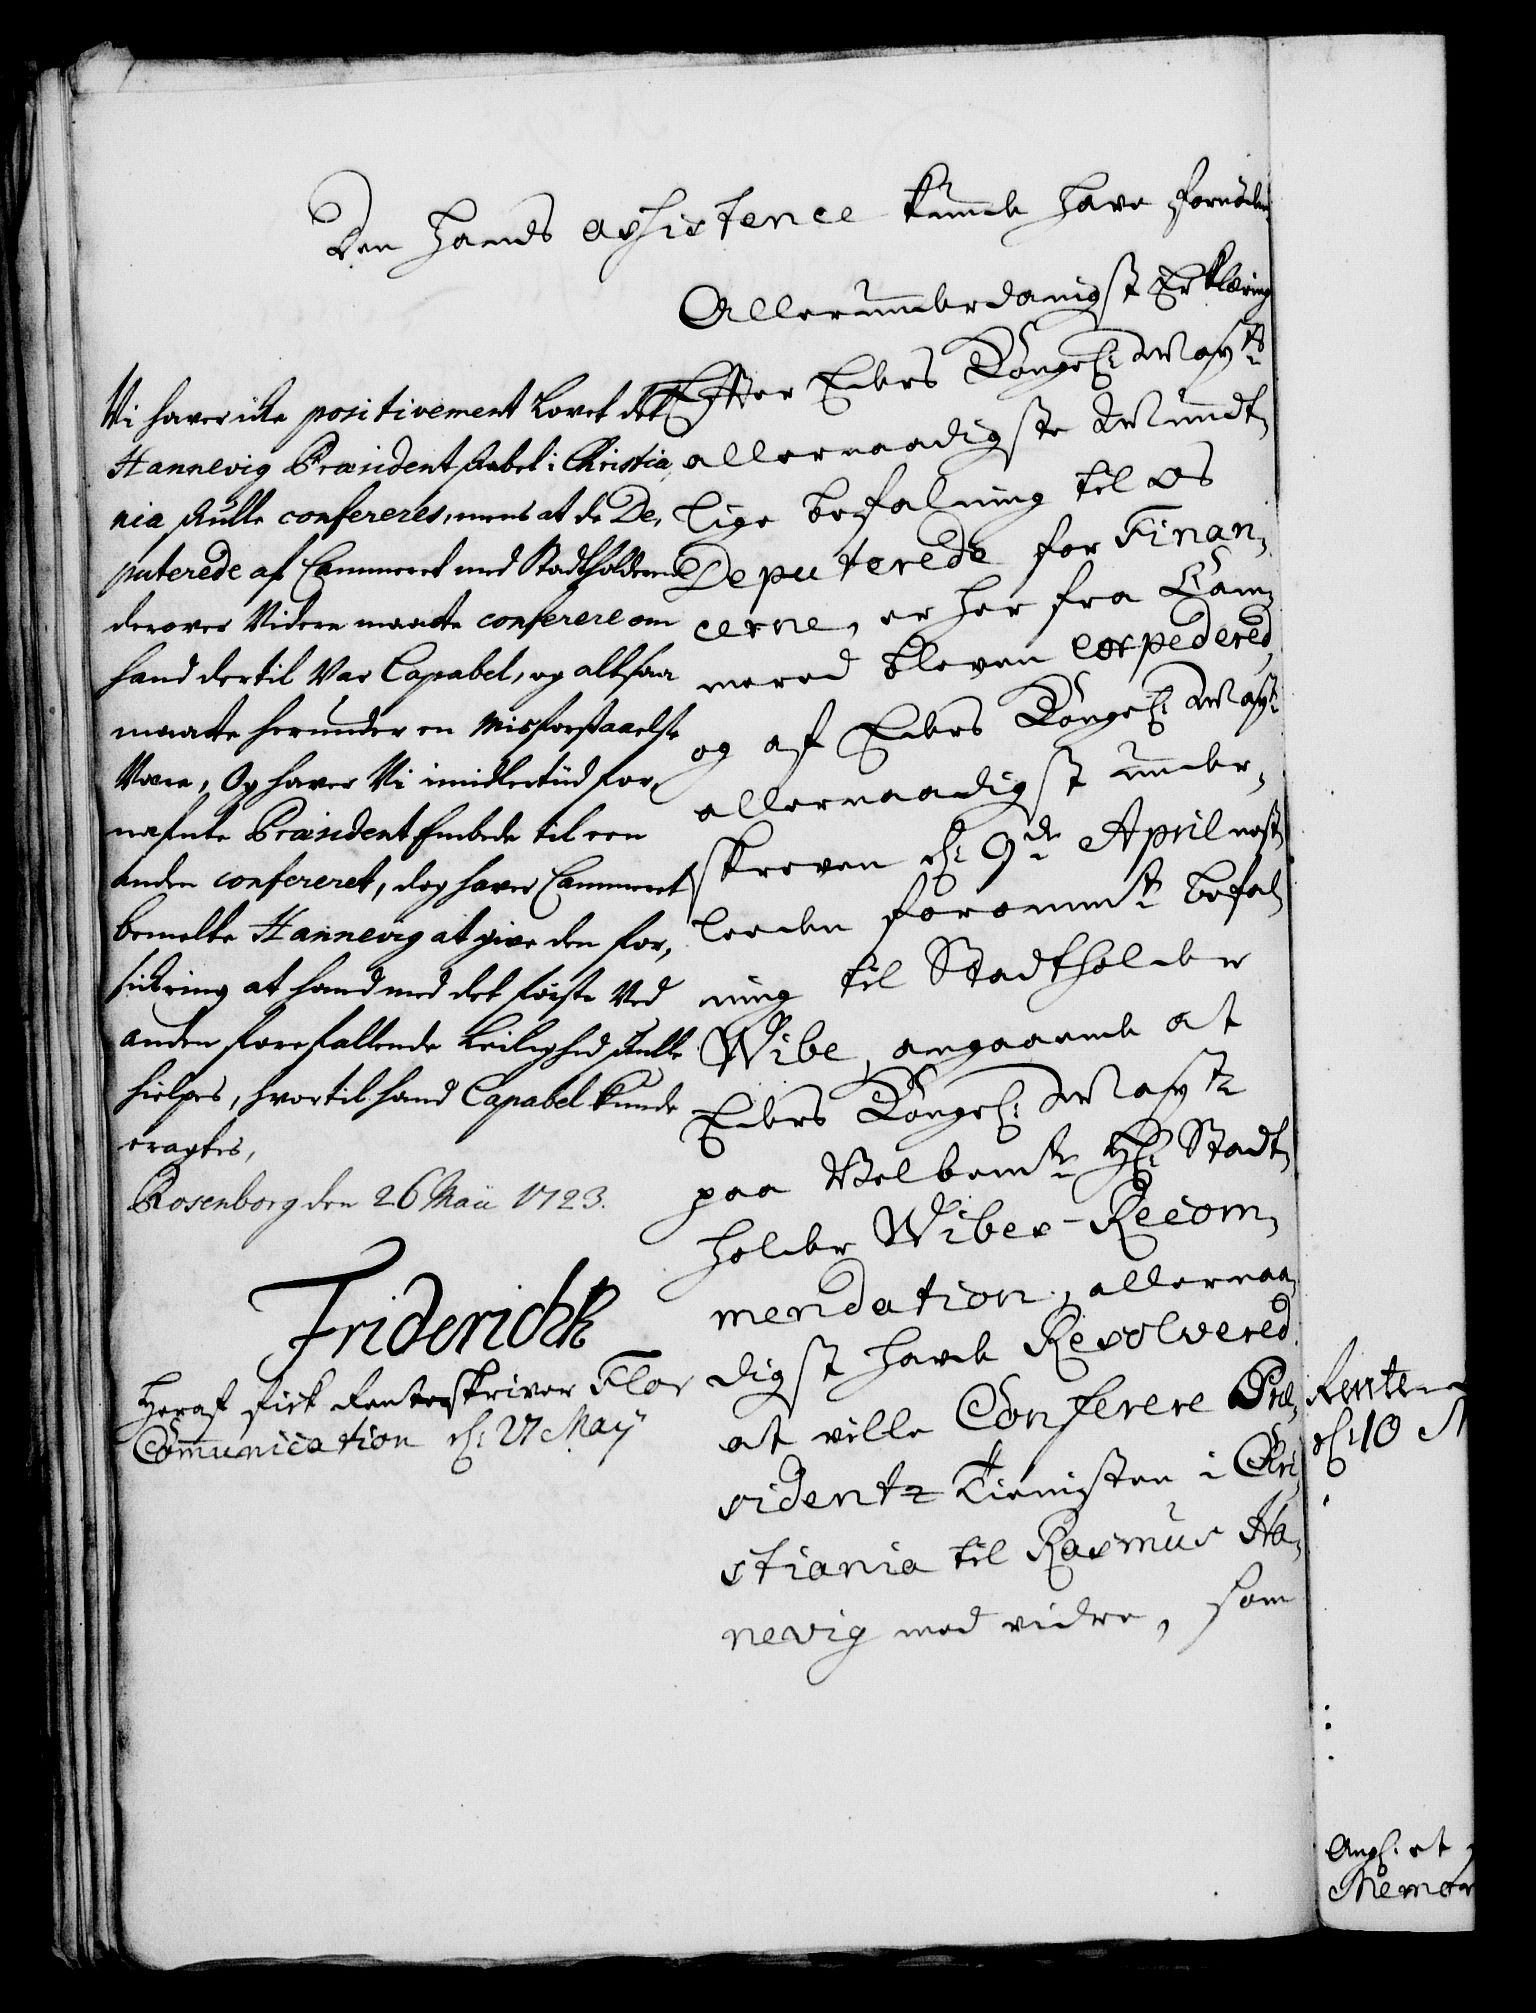 den hands assistence kunde have fornøden
Allerunderdanigst Erklæring
Effter Eders Kongel: Mayts
allernaadigste Mundt,
lige befalning til os
Deputerede for Finan,
cerne, er her fra Cam,
mered bleven expedered,
og af Eders Kongel: Mayt
allernaadigst under,
skreven d: 9de April nest
leeden forommte befal,
ning til Stadtholder
Wibe, angaaende at
Eders Kongel: Mayt
paa Velbemte Hr: Stadt,
holder Wibes Recom,
mendation, allernaa,
digst havde Resolvered
at ville Conferere Præ,
sidentz Tienisten i Chri,
stiania til Rasmus Ha,
nevig med videre, som
Vi haver icke positivement Lovet det
Hannevig Præsidentskabet i Christia,
nia skulle confereres, mens at de De,
puterede af Cammeret med Stadtholderen
derover Videre maatte conferere om
hand dertil Var Capabel, og altsaa
maatte herunder en Misforstaaelse
Være, Og haver Vi imidlertiid for,
nefnte Præsident Embede til een
anden confereret, dog haver Cammeret
bemelte Hannevig at give den for,
sickring at hand med det første Ved
anden forefallende Leilighed skulle
hielpes, hvortil hand Capabel kunde
eragtes,
Rosenborg den 26 Maii 1723.
Friderich R
Heraf fick Renteskriver Flor
Communication d: 27 May
Rente
d: 10 M
Ang: at
Memor